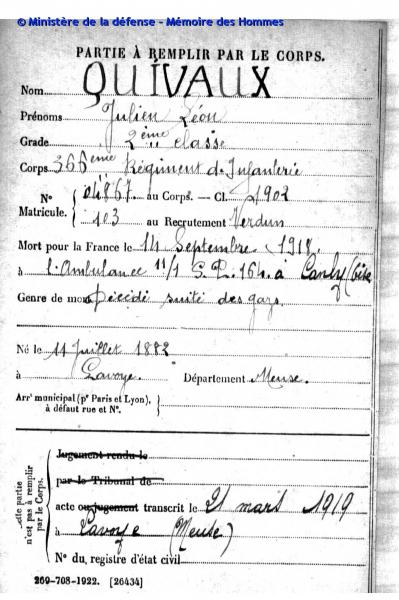 © Ministère de la défense - Mémoire des Hommes
PARTIE À REMPLIR PAR LE CORPS.
Nom QUIVAUX
Prénoms Julien Léon
Grade 2ème classe
Corps 366ème Régiment d'Infanterie
N° Matricule. 04867 au Corps. — Cl. 1902
103 au Recrutement Verdun
Mort pour la France le 14 Septembre 1918
à l'Ambulance 11/1 S.P. 164 à Canly (Oise
Genre de mort Décédé suite des gaz.
Né le 11 Juillet 1882
à Lavoye. Département Meuse.
Arrt municipal (pr Paris et Lyon),
à défaut rue et N°.
Cette partie n'est pas à remplir par le Corps.
Jugement rendu le
par le Tribunal de
acte ou jugement transcrit le 21 mars 1919
à Lavoye (Meuse)
N° du registre d'état civil
269-708-1922. [26434]